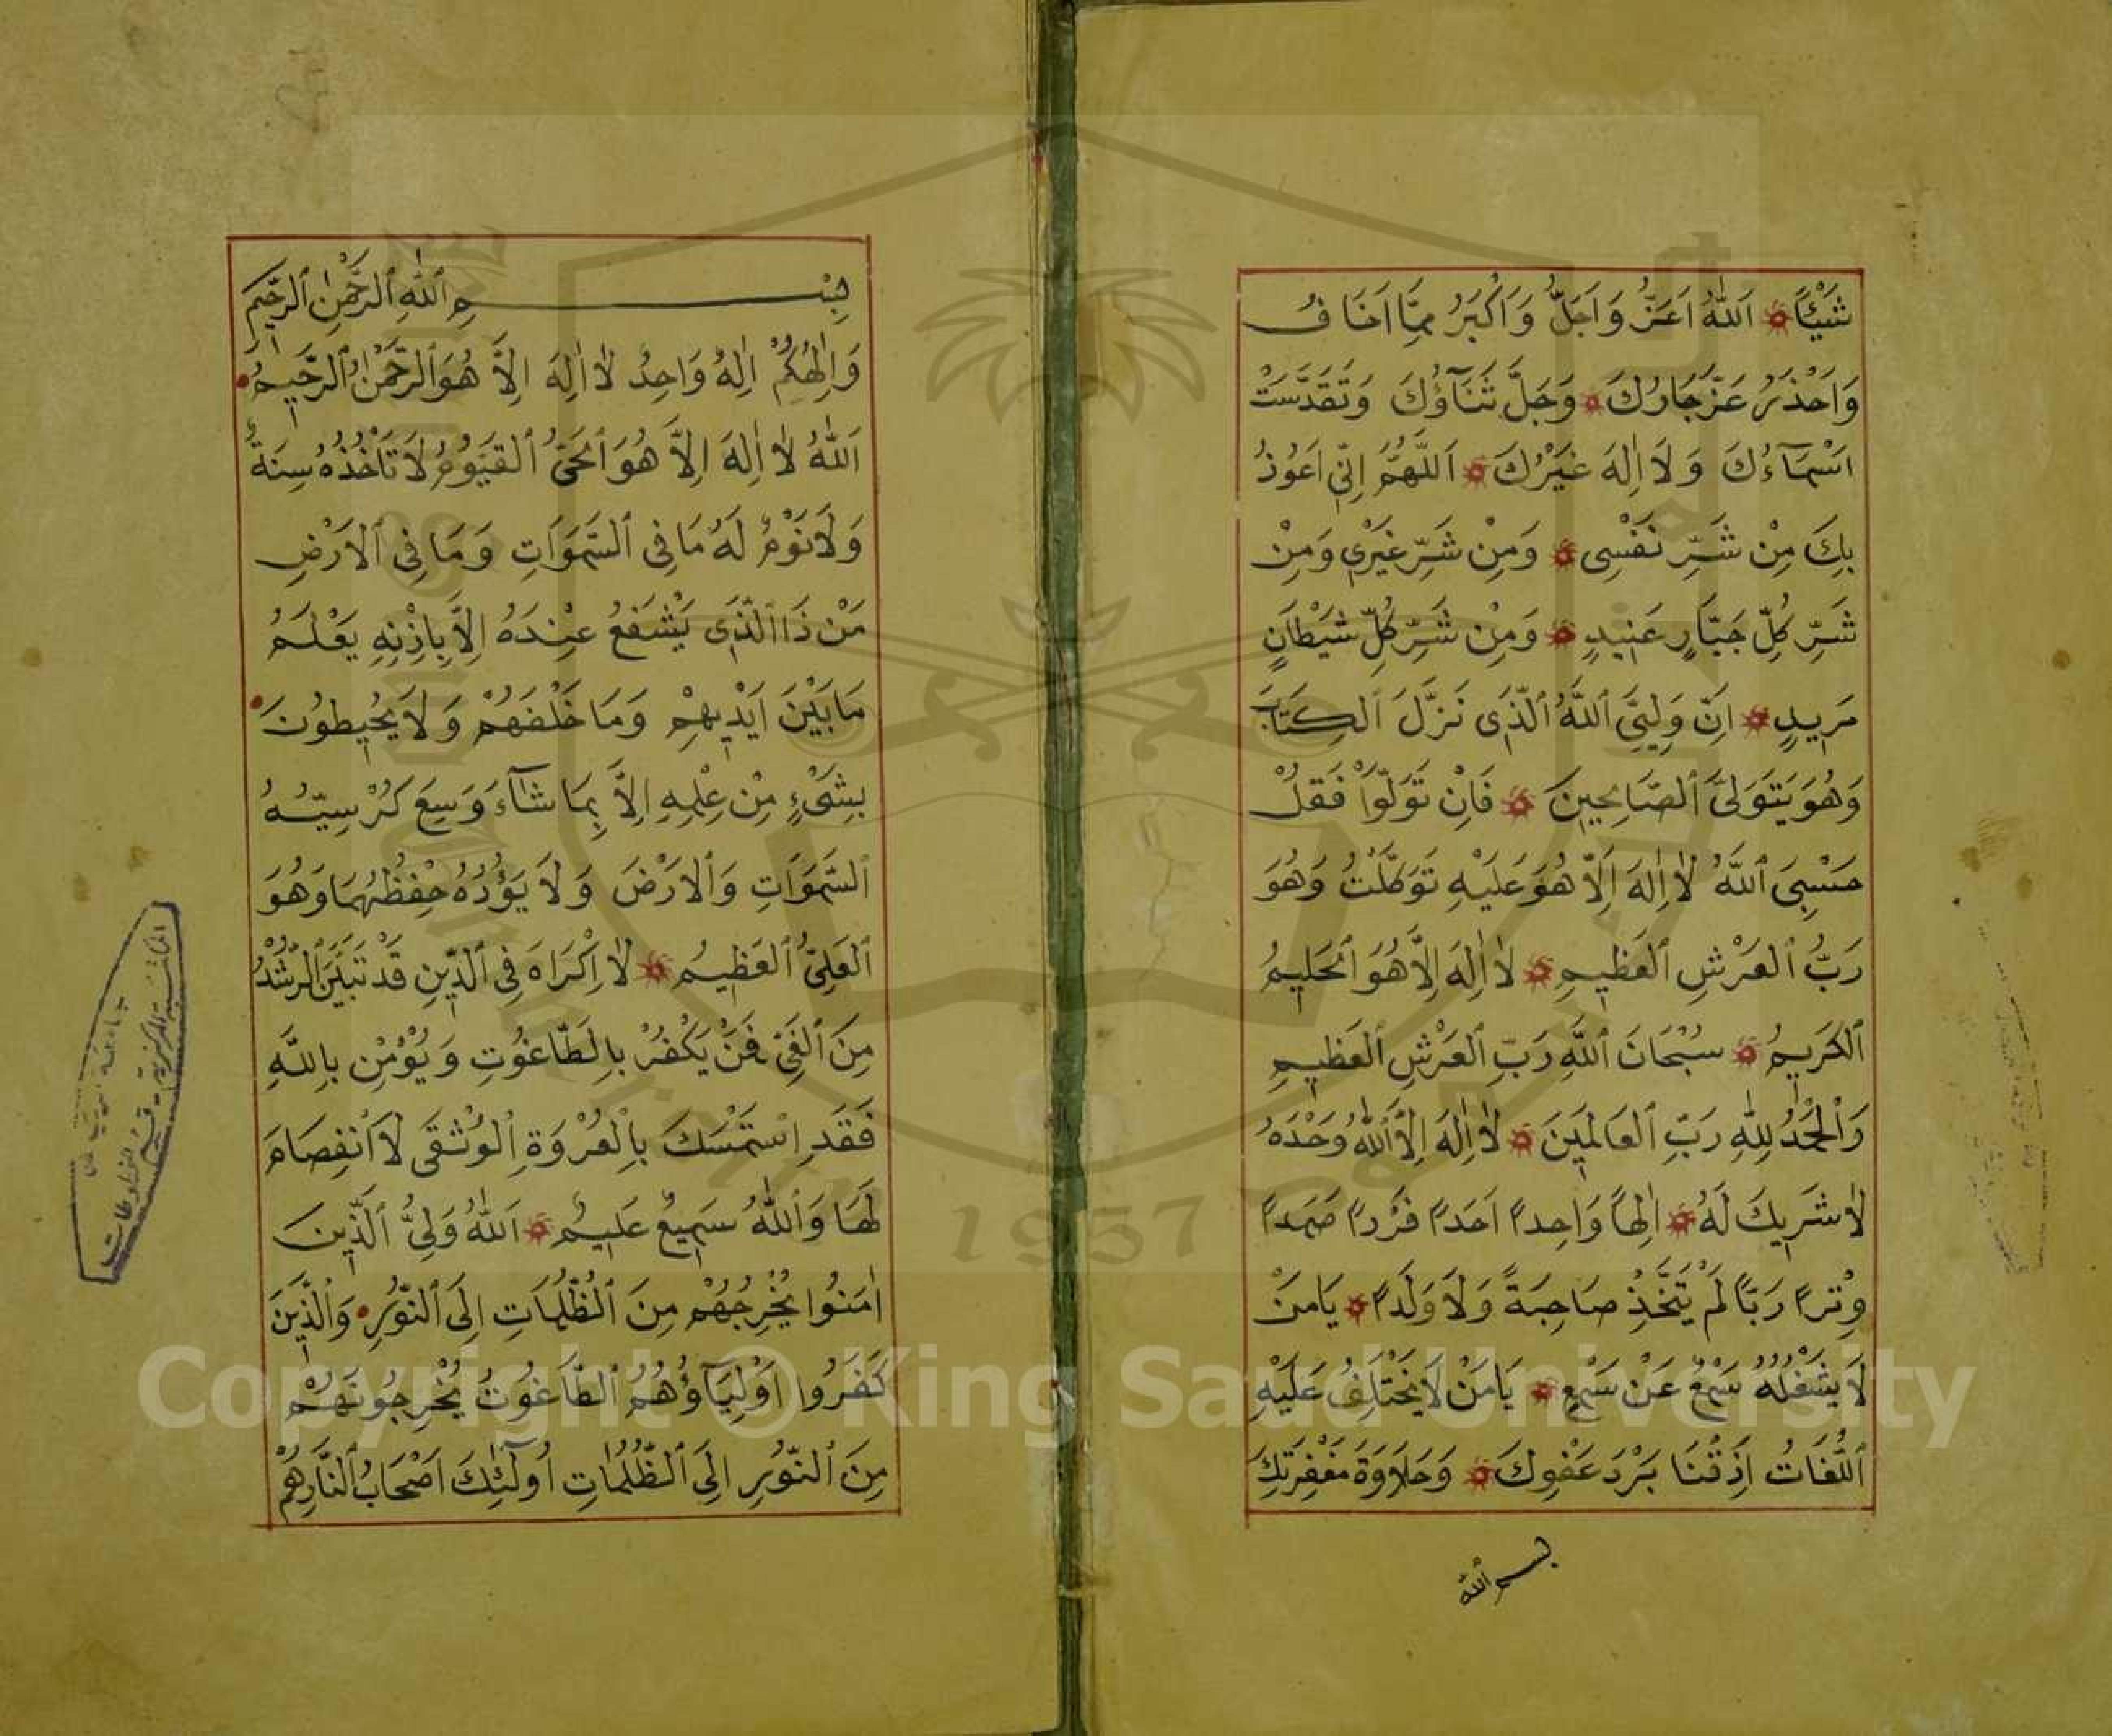 شَيْئًا اَللّٰهُ اَعَزُّ وَاَجَلُّ وَاَكْبَرُ مِمَّا اَخَافُ
وَاَحْذَرُ عَزَّ جَارُكَ وَجَلَّ ثَنَآؤُكَ وَتَقَدَّسَتْ
اَسْمَآءُكَ وَلَا اِلٰهَ غَيْرُكَ اَللّٰهُمَّ اِنِّي اَعُوْذُ
بِكَ مِنْ شَرِّ نَفْسِى وَمِنْ شَرِّ غَيْرِي وَمِنْ
شَرِّ كُلِّ جَبَّارٍ عَنِيدٍ وَمِنْ شَرِّ كُلِّ شَيْطَانٍ
مَرِيدٍ اِنَّ وَلِيِّيَ ٱللّٰهُ ٱلَّذِى نَزَّلَ ٱلْكِتَابَ
وَهُوَ يَتَوَلَّى ٱلصَّالِحِينَ فَاِنْ تَوَلَّوْا فَقُلْ
حَسْبِىَ ٱللّٰهُ لَا اِلٰهَ اِلَّا هُوَ عَلَيْهِ تَوَكَّلْتُ وَهُوَ
رَبُّ ٱلْعَرْشِ ٱلْعَظِيمِ لَا اِلٰهَ اِلَّا هُوَ ٱلْحَلِيمُ
ٱلْكَرِيمُ سُبْحَانَ ٱللّٰهِ رَبِّ ٱلْعَرْشِ ٱلْعَظِيمِ
وَٱلْحَمْدُ لِلّٰهِ رَبِّ ٱلْعَالَمِينَ لَا اِلٰهَ اِلَّا ٱللّٰهُ وَحْدَهُ
لَا شَرِيكَ لَهُ اِلٰهًا وَاحِدًا اَحَدًا فَرْدًا صَمَدًا
وِتْرًا رَبًّا لَمْ يَتَّخِذْ صَاحِبَةً وَلَا وَلَدًا يَا مَنْ
لَا يَشْغَلُهُ سَمْعٌ عَنْ سَمْعٍ يَا مَنْ لَا يَخْتَلِفُ عَلَيْهِ
ٱللُّغَاتُ اَذِقْنَا بَرْدَ عَفْوِكَ وَحَلَاوَةَ مَغْفِرَتِكَ
بسم ٱلله
بِسْمِ ٱللّٰهِ ٱلرَّحْمٰنِ ٱلرَّحِيمِ
وَاِلٰهُكُمْ اِلٰهٌ وَاحِدٌ لَا اِلٰهَ اِلَّا هُوَ ٱلرَّحْمٰنُ ٱلرَّحِيمُ
اَللّٰهُ لَا اِلٰهَ اِلَّا هُوَ ٱلْحَىُّ ٱلْقَيُّومُ لَا تَأْخُذُهُ سِنَةٌ
وَلَا نَوْمٌ لَهُ مَا فِى ٱلسَّمٰوَاتِ وَمَا فِى ٱلْاَرْضِ
مَنْ ذَا ٱلَّذِى يَشْفَعُ عِنْدَهُ اِلَّا بِاِذْنِهِ يَعْلَمُ
مَا بَيْنَ اَيْدِيهِمْ وَمَا خَلْفَهُمْ وَلَا يُحِيطُونَ
بِشَىْءٍ مِنْ عِلْمِهِ اِلَّا بِمَا شَآءَ وَسِعَ كُرْسِيُّهُ
ٱلسَّمٰوَاتِ وَٱلْاَرْضَ وَلَا يَؤُدُهُ حِفْظُهُمَا وَهُوَ
ٱلْعَلِىُّ ٱلْعَظِيمُ لَا اِكْرَاهَ فِى ٱلدِّينِ قَدْ تَبَيَّنَ ٱلرُّشْدُ
مِنَ ٱلْغَىِّ فَمَنْ يَكْفُرْ بِالطَّاغُوتِ وَيُؤْمِنْ بِاللّٰهِ
فَقَدِ اسْتَمْسَكَ بِالْعُرْوَةِ ٱلْوُثْقَى لَا انْفِصَامَ
لَهَا وَٱللّٰهُ سَمِيعٌ عَلِيمٌ اَللّٰهُ وَلِىُّ ٱلَّذِينَ
اٰمَنُوا يُخْرِجُهُمْ مِنَ ٱلظُّلُمَاتِ اِلَى ٱلنُّورِ وَٱلَّذِينَ
كَفَرُوا اَوْلِيَآؤُهُمُ ٱلطَّاغُوتُ يُخْرِجُونَهُمْ
مِنَ ٱلنُّورِ اِلَى ٱلظُّلُمَاتِ اُولٰٓئِكَ اَصْحَابُ ٱلنَّارِ هُمْ
Copyright © King Saud University
1957